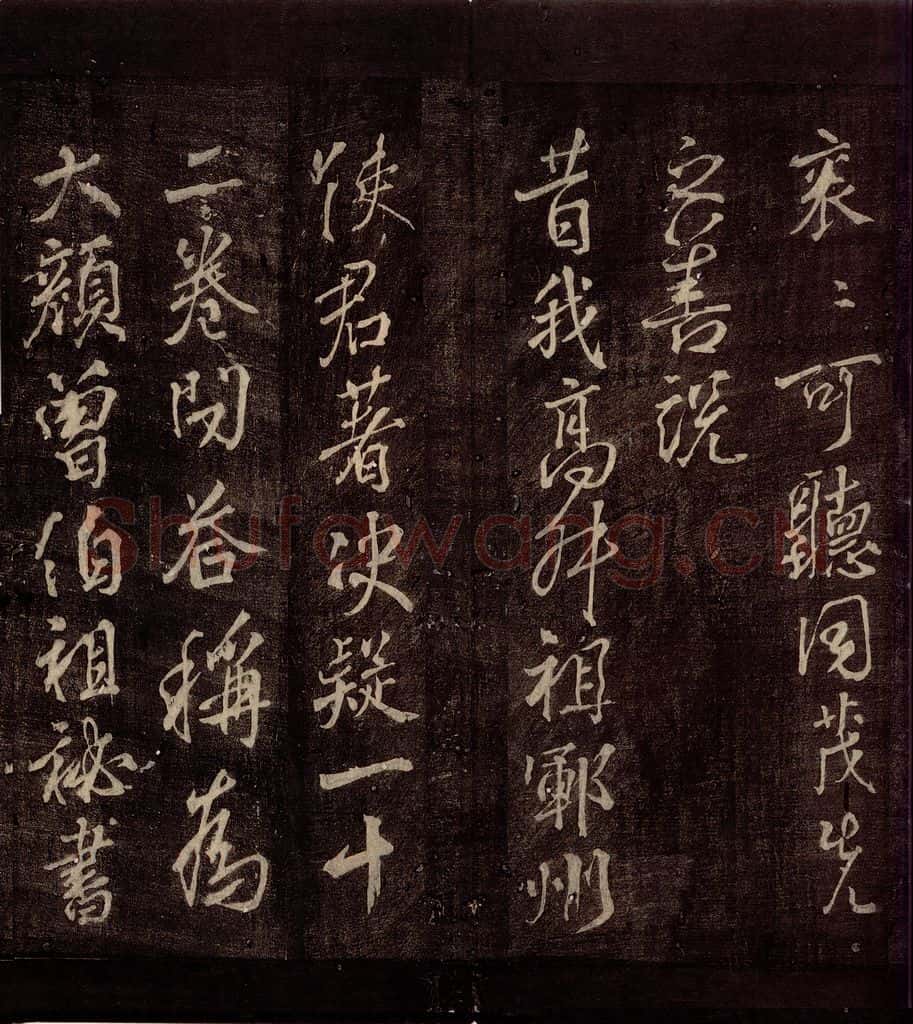 衮〻可聽同茂先
之善説
昔我高叔祖鄆州
使君著决疑一十
二卷問答稱為
大顔曾伯祖祕書
Shufawang.cn